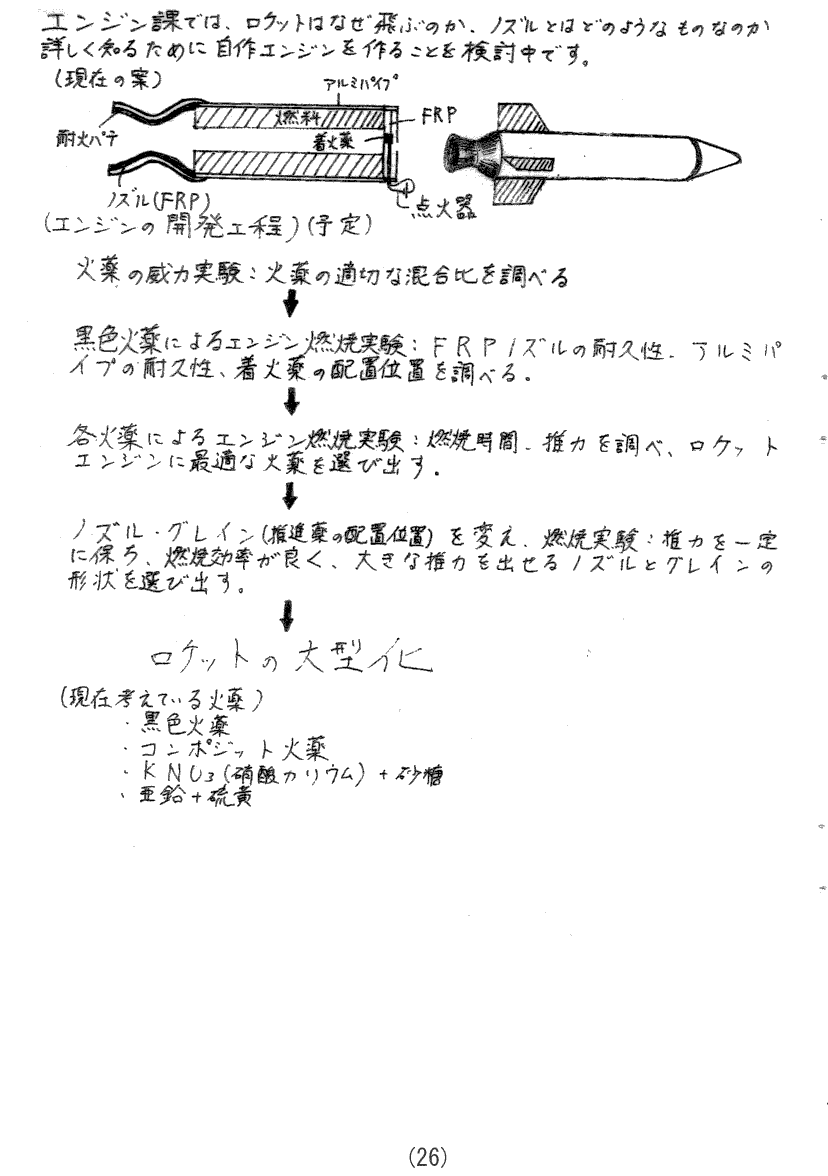 エンジン課では、ロケットはなぜ飛ぶのか、ノズルとはどのようなものなのか
詳しく知るために自作エンジンを作ることを検討中です。
(現在の案)
アルミパイプ
燃料
FRP
着火薬
耐火パテ
ノズル(FRP)
点火器
(エンジンの開発工程)(予定)
火薬の威力実験:火薬の適切な混合比を調べる
黒色火薬によるエンジン燃焼実験:FRPノズルの耐久性、アルミパ
イプの耐久性、着火薬の配置位置を調べる。
各火薬によるエンジン燃焼実験:燃焼時間、推力を調べ、ロケット
エンジンに最適な火薬を選び出す。
ノズル・グレイン(推進薬の配置位置)を変え、燃焼実験:推力を一定
に保ち、燃焼効率が良く、大きな推力を出せるノズルとグレインの
形状を選び出す。
ロケットの大型化
(現在考えている火薬)
・黒色火薬
・コンポジット火薬
・KNO₃(硝酸カリウム)+砂糖
・亜鉛+硫黄
(26)